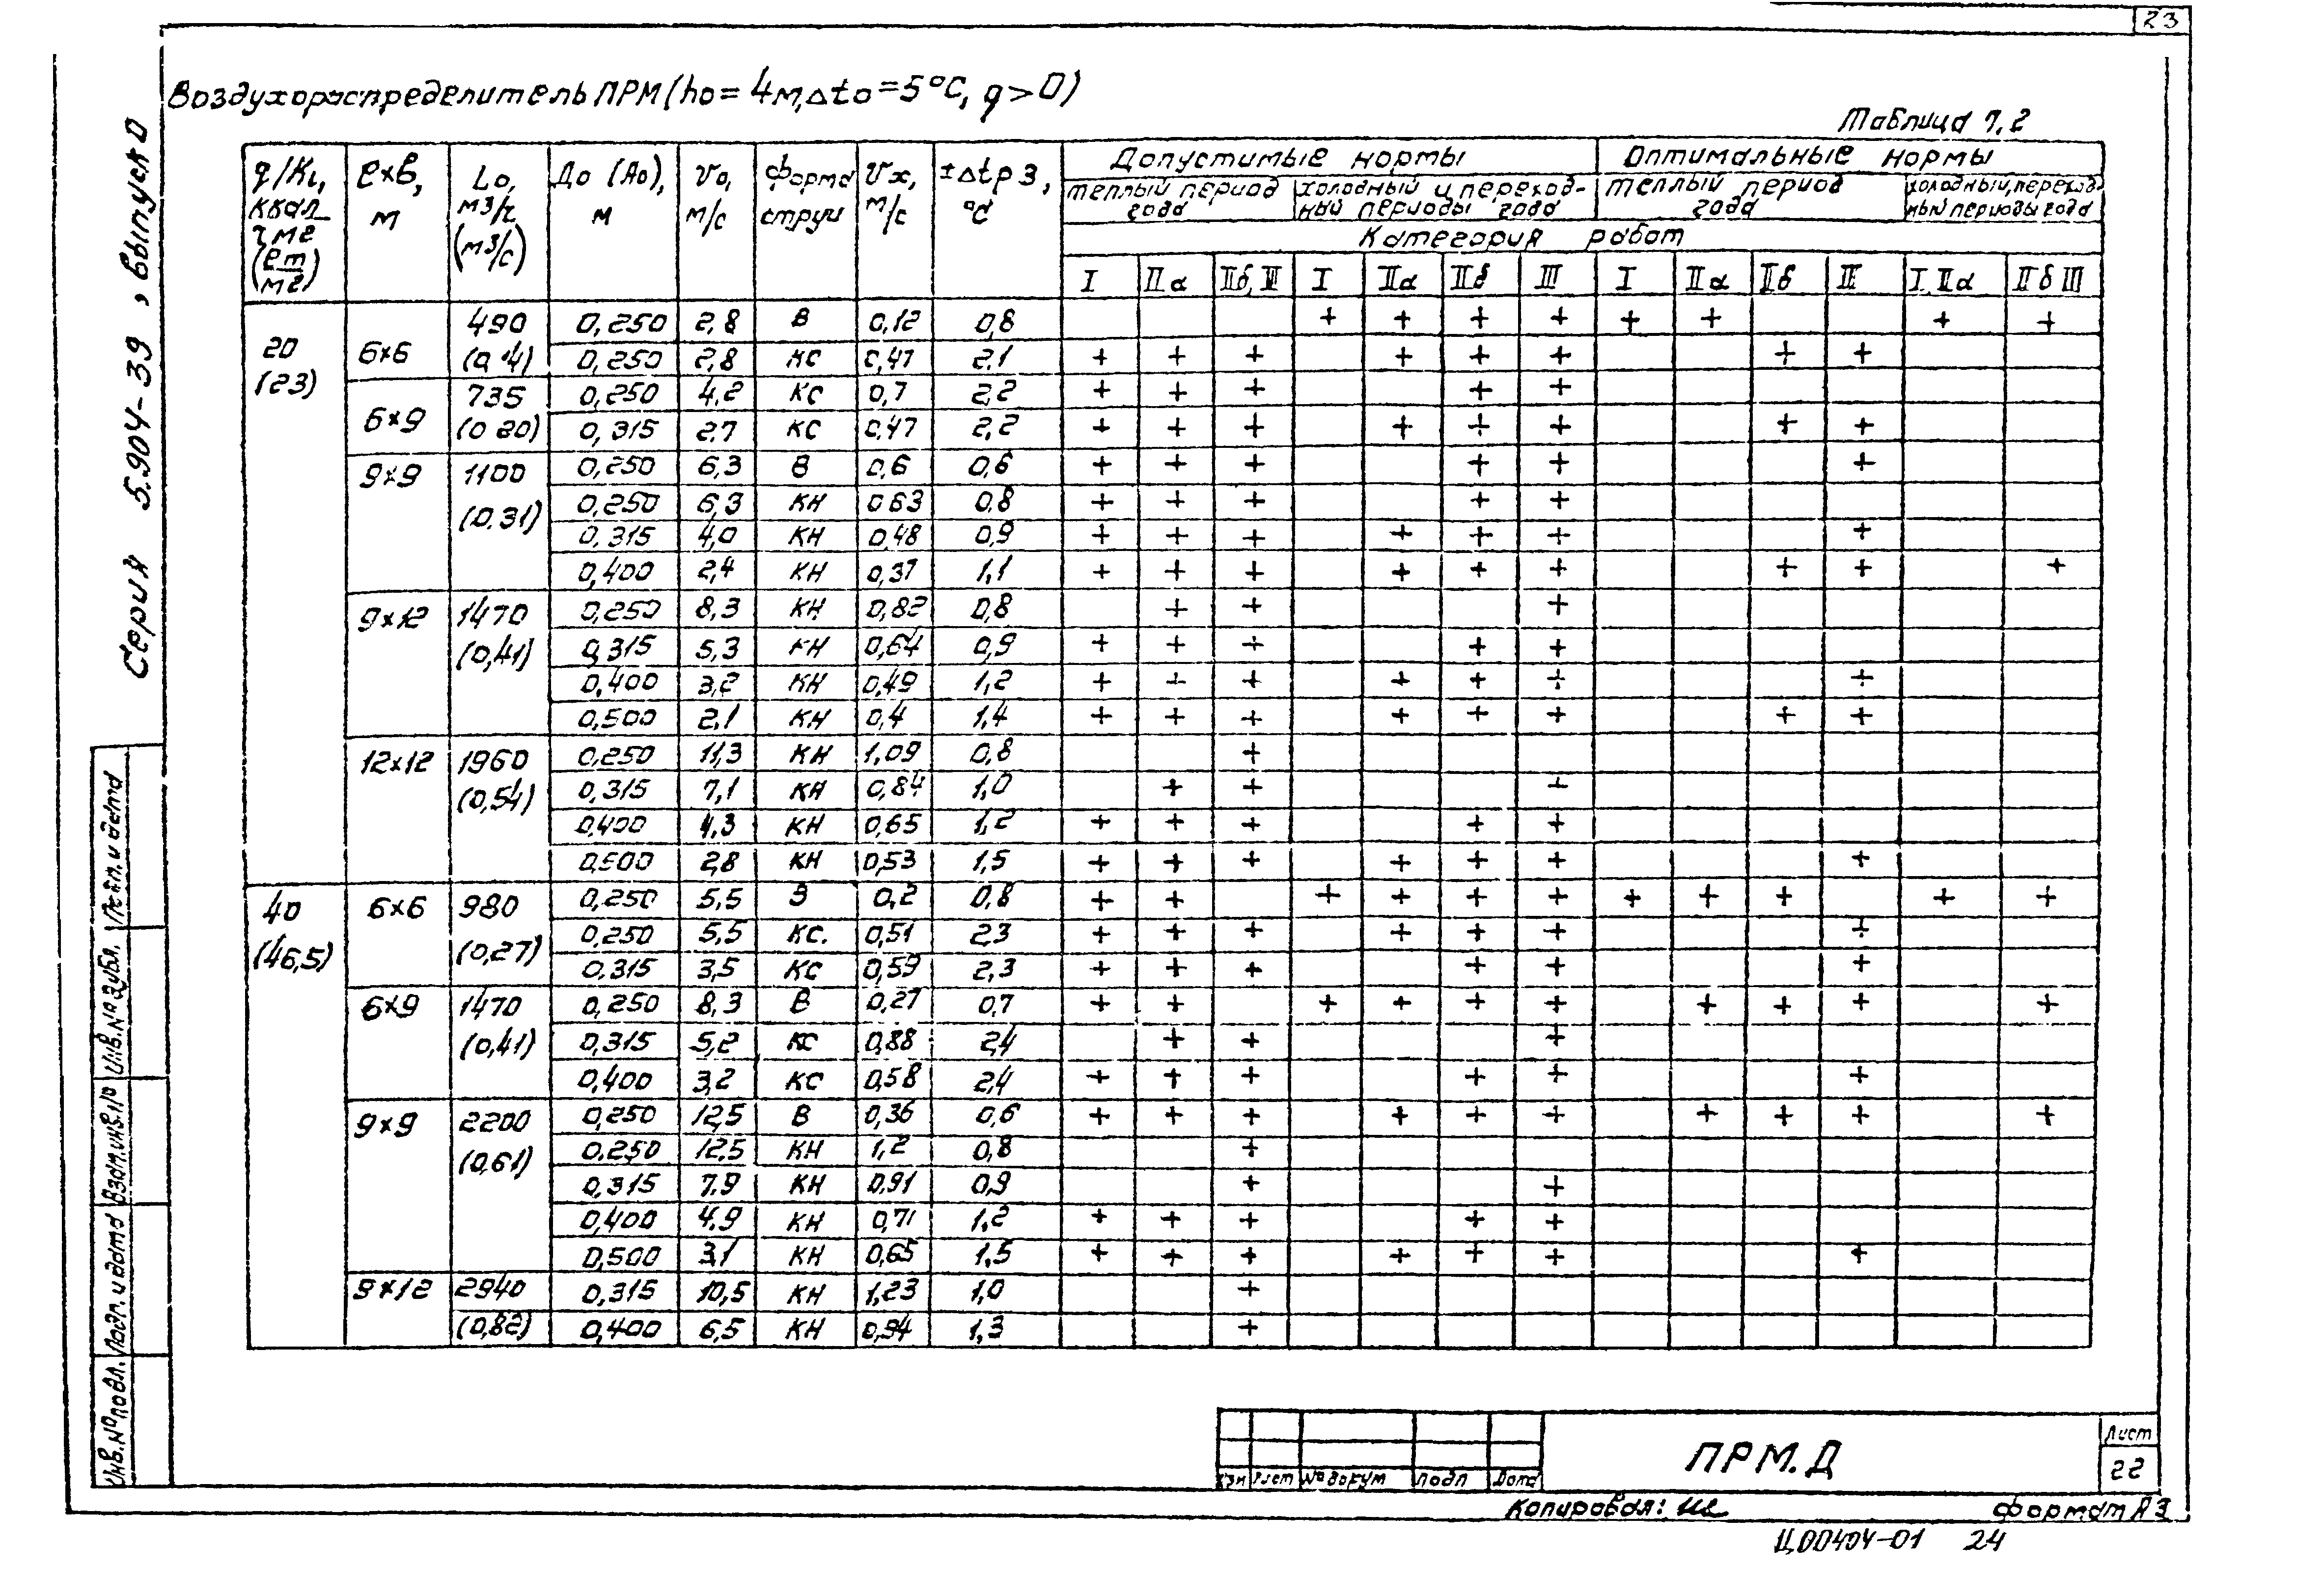 23
Воздухораспределитель ПРМ (hо = 4м, Δtо = 5°С, q > 0)
Таблица 7,2
Серия 5.904-39, выпуск 0
q/KL, ккал/ч м2 (Вт/м2) | ℓ×в, м | Lо, м3/ч (м3/с) | До (Ао), м | vо, м/с | Форма струи | vх, м/с | ±Δtр з, °С | Допустимые нормы | Оптимальные нормы
теплый период года | холодный и переходный периоды года | теплый период года | холодный, переходный периоды года
Категория работ
I | IIа | IIб, III | I | IIа | IIб | III | I | IIа | IIб | III | I, IIа | IIб III
20 (23) | 6×6 | 490 | 0,250 | 2,8 | В | 0,12 | 0,8 | | | | + | + | + | + | + | + | | | + | +
0,250 | 2,8 | КС | 0,47 | 2,1 | + | + | + | | + | + | + | | | + | + | |
6×9 | 735 (0 20) | 0,250 | 4,2 | КС | 0,7 | 2,2 | + | + | + | | | + | + | | | | | |
0,315 | 2,7 | КС | 0,47 | 2,2 | + | + | + | | + | + | + | | | + | + | |
9×9 | 1100 (0,31) | 0,250 | 6,3 | В | 0,6 | 0,6 | + | + | + | | | + | + | | | | + | |
0,250 | 6,3 | КН | 0 63 | 0,8 | + | + | + | | | + | + | | | | | |
0,315 | 4,0 | КН | 0,48 | 0,9 | + | + | + | | + | + | + | | | | + | |
0,400 | 2,4 | КН | 0,37 | 1,1 | + | + | + | | + | + | + | | | + | + | | +
9×12 | 1470 (0,41) | 0,250 | 8,3 | КН | 0,82 | 0,8 | | + | + | | | | + | | | | | |
0,315 | 5,3 | КН | 0,64 | 0,9 | + | + | + | | | + | + | | | | | |
0,400 | 3,2 | КН | 0,49 | 1,2 | + | + | + | | + | + | + | | | | + | |
0,500 | 2,1 | КН | 0,4 | 1,4 | + | + | + | | + | + | + | | | + | + | |
12×12 | 1960 (0,54) | 0,250 | 11,3 | КН | 1,09 | 0,8 | | | + | | | | | | | | | |
0,315 | 7,1 | КН | 0,84 | 1,0 | | + | + | | | | + | | | | | |
0,400 | 4,3 | КН | 0,65 | 1,2 | + | + | + | | | + | + | | | | | |
0,500 | 2,8 | КН | 0,53 | 1,5 | + | + | + | | + | + | + | | | | + | |
40 (46,5) | 6×6 | 980 (0,27) | 0,250 | 5,5 | В | 0,2 | 0,8 | + | + | | + | + | + | + | + | + | + | | + | +
0,250 | 5,5 | КС. | 0,51 | 2,3 | + | + | + | | + | + | + | | | | + | |
0,315 | 3,5 | КС | 0,59 | 2,3 | + | + | + | | | + | + | | | | + | |
6×9 | 1470 (0,41) | 0,250 | 8,3 | В | 0,27 | 0,7 | + | + | | + | + | + | + | | + | + | + | | +
0,315 | 5,2 | КС | 0,88 | 2,4 | | + | + | | | | + | | | | | |
0,400 | 3,2 | КС | 0,58 | 2,4 | + | + | + | | | + | + | | | | + | |
9×9 | 2200 (0,61) | 0,250 | 12,5 | В | 0,36 | 0,6 | + | + | + | | + | + | + | | + | + | + | | +
0,250 | 12,5 | КН | 1,2 | 0,8 | | | + | | | | | | | | | |
0,315 | 7,9 | КН | 0,91 | 0,9 | | | + | | | | + | | | | | |
0,400 | 4,9 | КН | 0,71 | 1,2 | + | + | + | | | + | + | | | | | |
0,500 | 3,1 | КН | 0,65 | 1,5 | + | + | + | | + | + | + | | | | + | |
9×12 | 2940 (0,82) | 0,315 | 10,5 | КН | 1,23 | 1,0 | | | + | | | | | | | | | |
0,400 | 6,5 | КН | 0,94 | 1,3 | | | + | | | | | | | | | |
Инв. № подл. | Подп. и дата | Взам. инв. № | Инв. № дубл. | Подп. и дата
Изм | Лист | № докум | Подп | Дата
ПРМ.Д
Лист
22
Копировал:
Формат А3
Ц00404-01 24